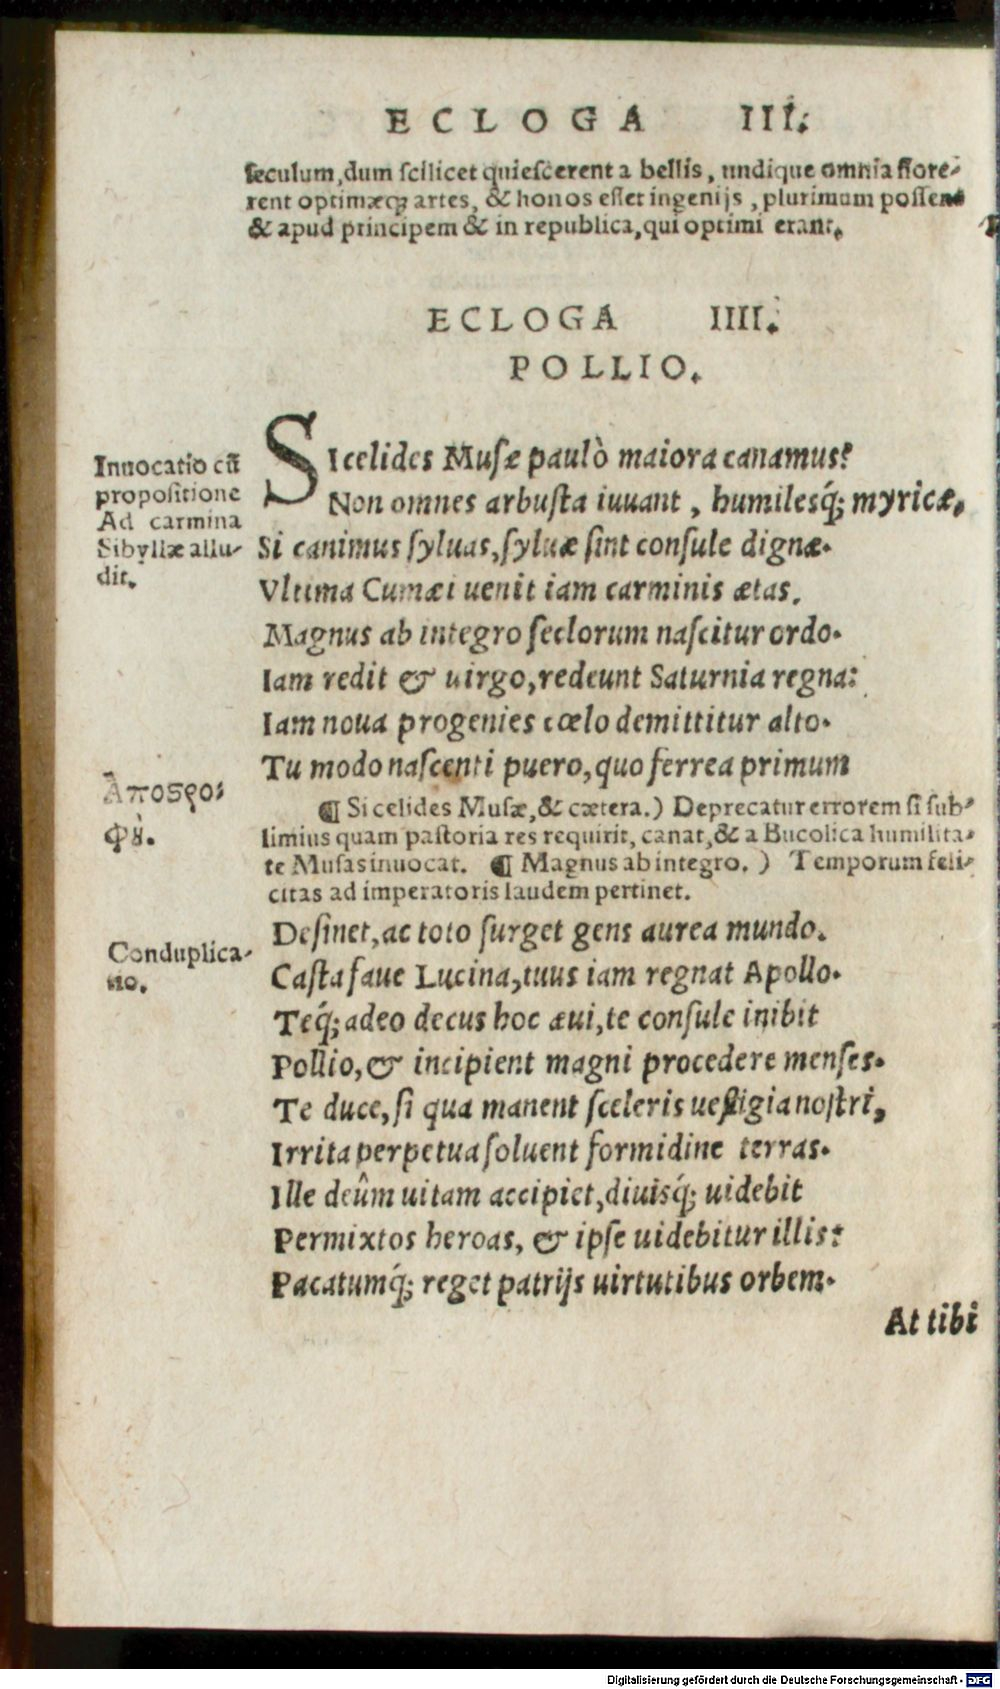 ECLOGA III.
seculum, dum scilicet quiescerent a bellis, undique omnia flore-
rent optimæq; artes, & honos esset ingenijs, plurimum possent
& apud principem & in republica, qui optimi erant.
ECLOGA IIII.
POLLIO.
Inuocatio cū
propositione
Ad carmina
Sibyllæ allu-
dit.
SIcelides Musæ paulò maiora canamus:
Non omnes arbusta iuuant, humilesq́; myricæ,
Si canimus syluas, syluæ sint consule dignæ.
Vltima Cumæi uenit iam carminis ætas.
Magnus ab integro seclorum nascitur ordo.
Iam redit & uirgo, redeunt Saturnia regna:
Iam noua progenies cœlo demittitur alto.
Ἀποςρο-
φή.
Tu modo nascenti puero, quo ferrea primum
¶ Sicelides Musæ, & cætera.) Deprecatur errorem si sub-
limius quam pastoria res requirit, canat, & a Bucolica humilita-
te Musas inuocat. ¶ Magnus ab integro.) Temporum feli-
citas ad imperatoris laudem pertinet.
Desinet, ac toto surget gens aurea mundo.
Conduplica-
tio.
Casta faue Lucina, tuus iam regnat Apollo.
Teq́; adeo decus hoc æui, te consule inibit
Pollio, & incipient magni procedere menses.
Te duce, si qua manent sceleris uestigia nostri,
Irrita perpetua soluent formidine terras.
Ille deûm uitam accipiet, diuisq́; uidebit
Permixtos heroas, & ipse uidebitur illis:
Pacatumq́; reget patrijs uirtutibus orbem.
At tibi
Digitalisierung gefördert durch die Deutsche Forschungsgemeinschaft - DFG